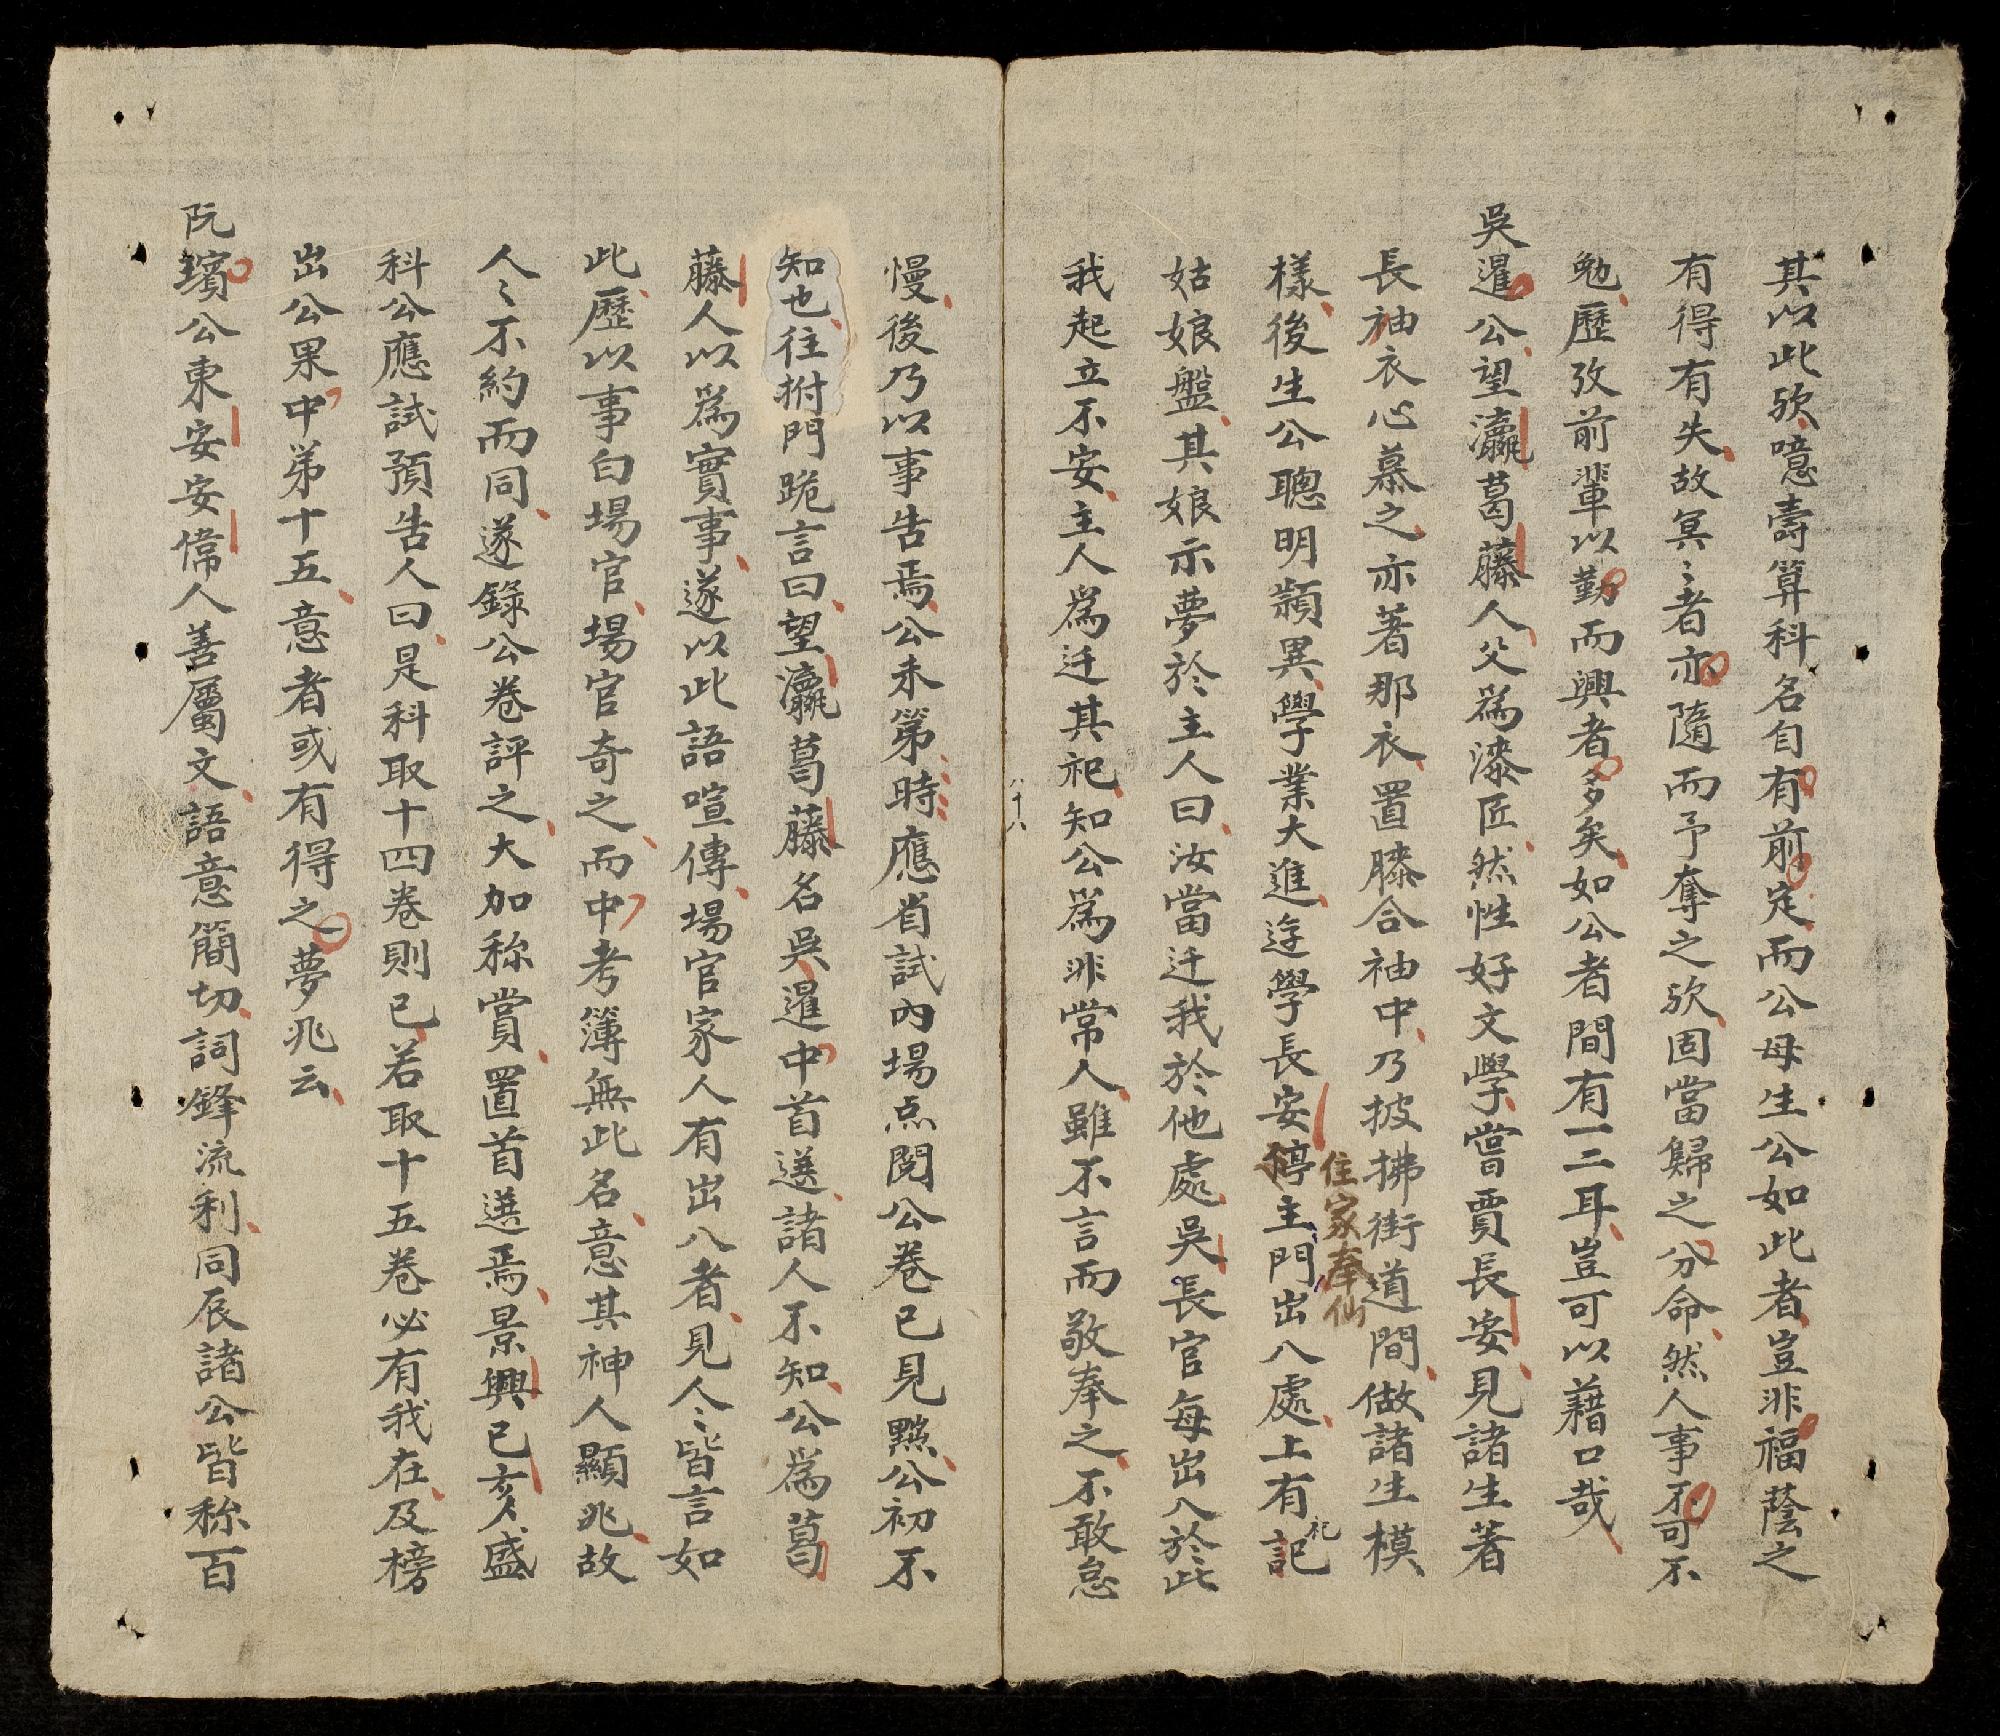 其以此欤噫壽算科名自有前定而公母生公如此者豈非福蔭之
有得有失故冥〻者亦隨而予奪之欤固當歸之分命然人事不可不
勉歷攷前輩以勤而興者多矣如公者間有一二耳豈可以藉口哉
吳暹公望瀛葛藤人父為漆匠然性好文學嘗賈長安見諸生著
長袖衣心慕之亦著那衣置膝合袖中乃披拂街道間做諸生模
住家奉仙
樣後生公聰明潁異學業大進遊學長安停主門出入處上有記
祀
姑娘盤其娘示夢於主人曰汝當迁我於他處吳長官每出入於此
我起立不安主人為迁其祀知公為非常人雖不言而敬奉之不敢怠
八十八
慢後乃以事告焉公未第時應省試內場点閱公卷已見黜公初不
知也往拊門跪言曰望瀛葛藤名吳暹中首選諸人不知公為葛
藤人以為實事遂以此語喧傳場官家人有出入者見人〻皆言如
此歷以事白場官場官奇之而中考簿無此名意其神人顯兆故
人〻不約而同遂錄公卷評之大加称賞置首選焉景興己亥盛
科公應試預告人曰是科取十四卷則已若取十五卷必有我在及榜
出公果中第十五意者或有得之夢兆云
阮璸公東安安偉人善屬文語意簡切詞鋒流利同辰諸公皆称百